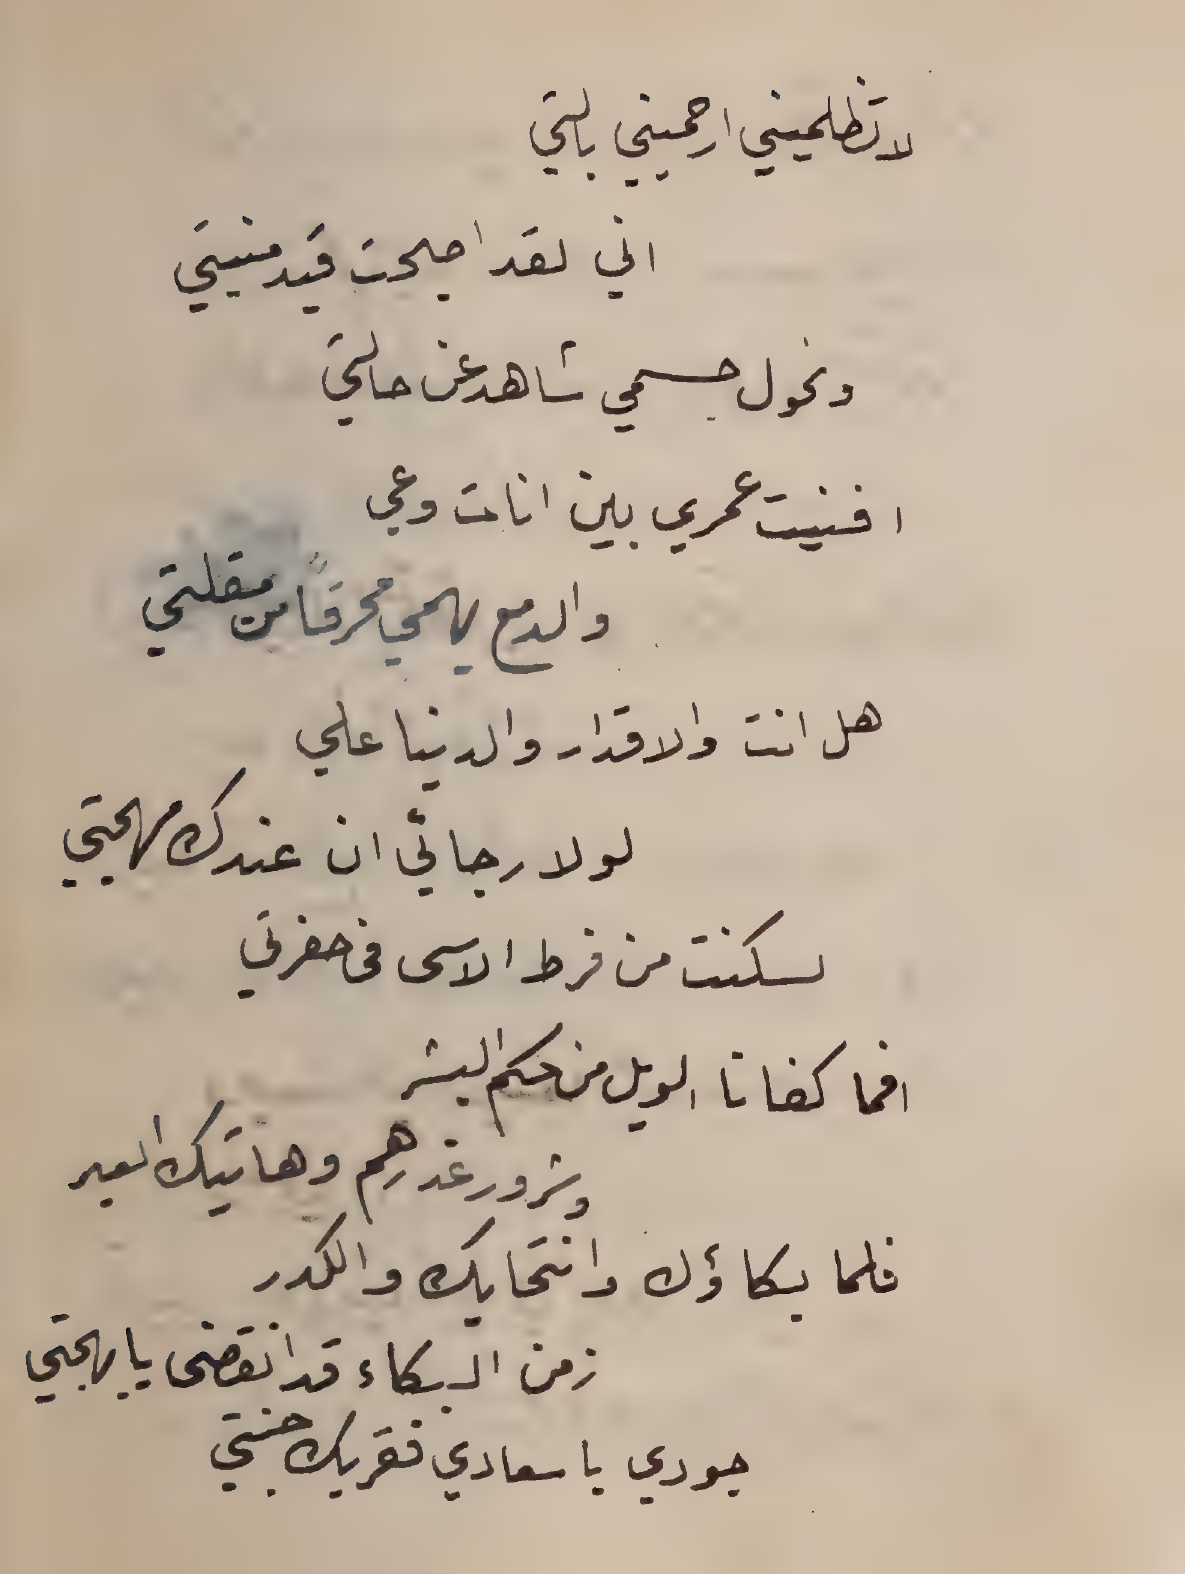 لا تظلميني ارحميني بالتي
اني لقد اصبحت قيد منيتي
ونحول جسمي شاهد عن حالتي
افنيت عمري بين انات وعي
والدمع يهمي محرقاً من مقلتي
هل انت والاقدار والدنيا علي
لولا رجائي ان عندك مهجتي
لسكنت من فرط الاسى في حفرتي
افما كفانا الويل من حكم البشر
وشرور غدرهم وهاتيك العبر
فلما بكاؤك وانتحابك والكدر
زمن البكاء قد انقضى يا بهجتي
جودي يا سعادي فقربك جنتي